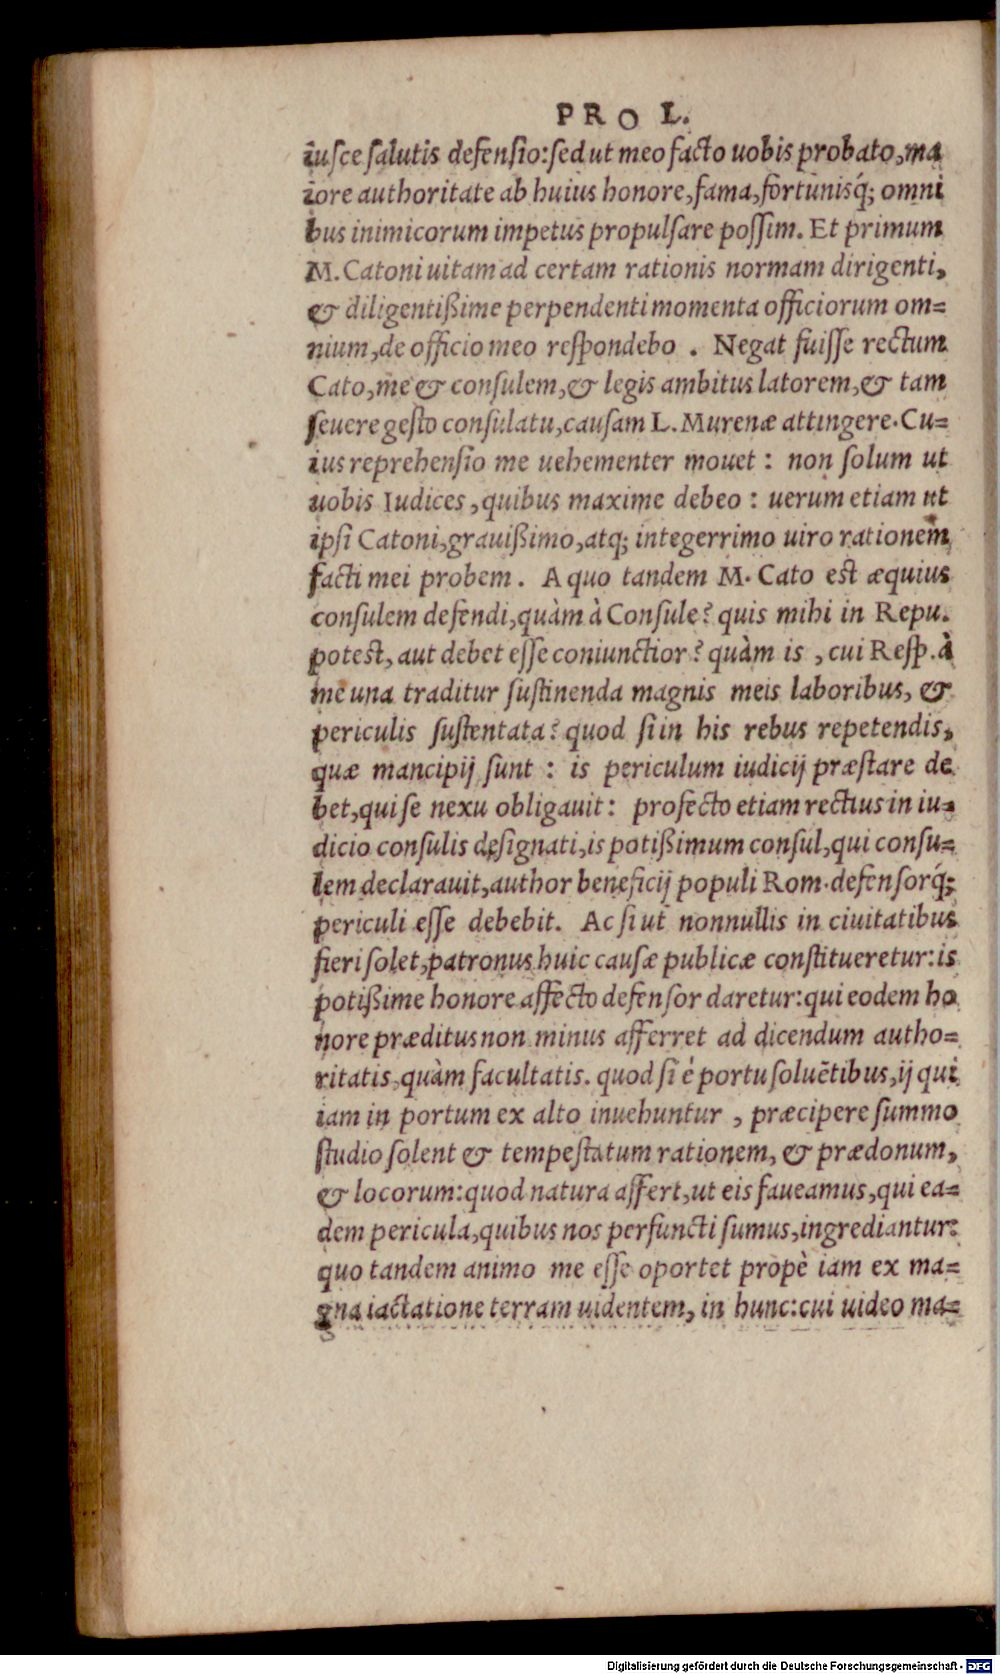 PRO L.
iusce salutis defensio: sed ut meo facto uobis probato, ma
iore authoritate ab huius honore, fama, fortunisq́; omni
bus inimicorum impetus propulsare possim. Et primum
M. Catoni uitam ad certam rationis normam dirigenti,
& diligentißime perpendenti momenta officiorum om=
nium, de officio meo respondebo . Negat fuisse rectum
Cato, me & consulem, & legis ambitus latorem, & tam
seuere gesto consulatu, causam L. Murenæ attingere. Cu=
ius reprehensio me uehementer mouet : non solum ut
uobis Iudices, quibus maxime debeo : uerum etiam ut
ipsi Catoni, grauißimo, atq; integerrimo uiro rationem
facti mei probem . A quo tandem M. Cato est æquius
consulem defendi, quàm à Consule? quis mihi in Repu.
potest, aut debet esse coniunctior? quàm is , cui Resp. à
me una traditur sustinenda magnis meis laboribus, &
periculis sustentata? quod si in his rebus repetendis,
quæ mancipij sunt : is periculum iudicij præstare de
bet, qui se nexu obligauit : profecto etiam rectius in iu=
dicio consulis designati, is potißimum consul, qui consu=
lem declarauit, author beneficij populi Rom. defensorq́;
periculi esse debebit. Ac si ut nonnullis in ciuitatibus
fieri solet, patronus huic causæ publicæ constitueretur: is
potißime honore affecto defensor daretur: qui eodem ho
nore præditus non minus afferret ad dicendum autho=
ritatis, quàm facultatis. quod si è portu soluẽtibus, ij qui
iam in portum ex alto inuehuntur , præcipere summo
studio solent & tempestatum rationem, & prædonum,
& locorum: quod natura affert, ut eis faueamus, qui ea=
dem pericula, quibus nos perfuncti sumus, ingrediantur:
quo tandem animo me esse oportet propè iam ex ma=
gna iactatione terram uidentem, in hunc: cui uideo ma=
Digitalisierung gefördert durch die Deutsche Forschungsgemeinschaft - DFG